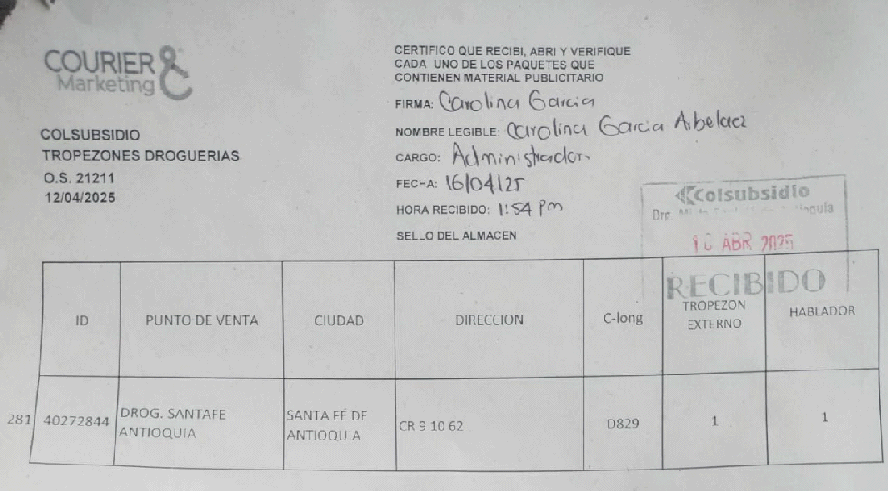 COURIER &
Marketing
COLSUBSIDIO
TROPEZONES DROGUERIAS
O.S. 21211
12/04/2025
CERTIFICO QUE RECIBI, ABRI Y VERIFIQUE
CADA UNO DE LOS PAQUETES QUE
CONTIENEN MATERIAL PUBLICITARIO
FIRMA: Carolina Garcia
NOMBRE LEGIBLE: Carolina Garcia Arbelaez
CARGO: Administrador.
FECHA: 16/04/25
HORA RECIBIDO: 1:54 Pm
SELLO DEL ALMACEN
Colsubsidio
ABR 2025
RECIBIDO
ID PUNTO DE VENTA CIUDAD DIRECCION C-long TROPEZON EXTERNO HABLADOR
281 40272844 DROG. SANTAFE ANTIOQUIA SANTA FE DE ANTIOQUIA CR 9 10 62 D829 1 1